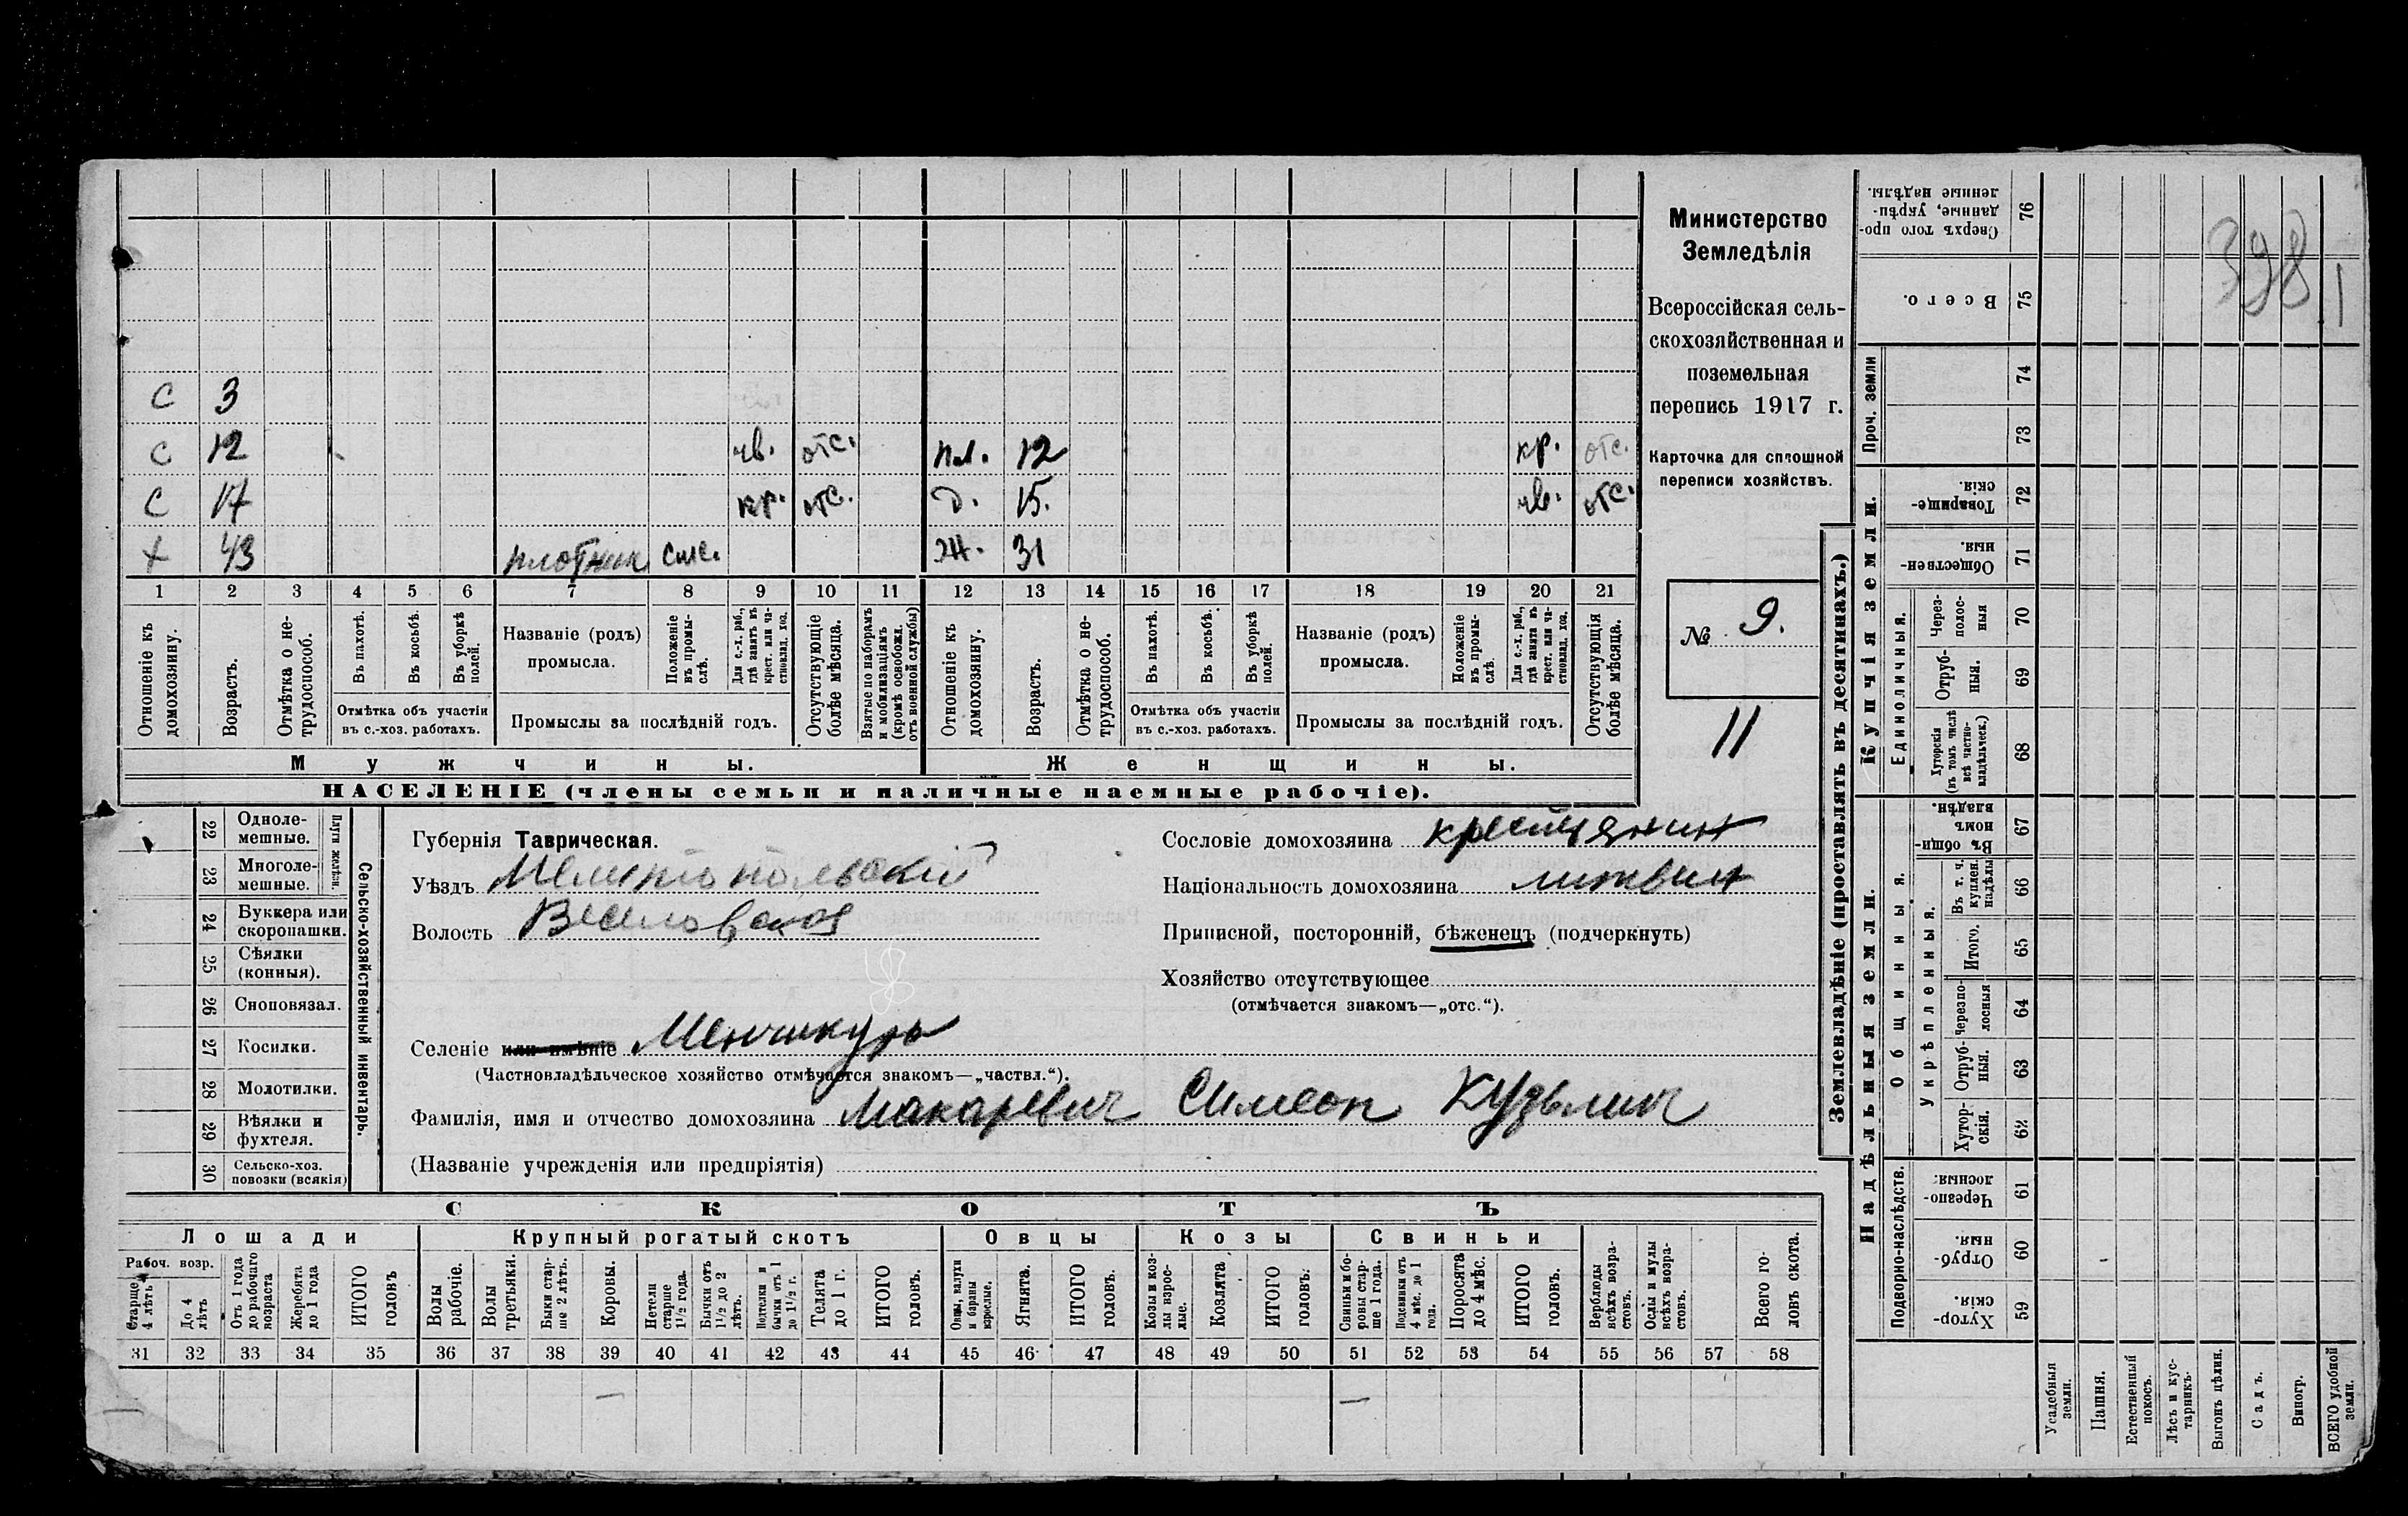 Министерство
Земледѣлія
Всероссійская сель-
скохозяйственная и
поземельная
перепись 1917 г.
Карточка для сплошной
переписи хозяйствъ.
№ 9.
11
398
С 3
С 12 чв. отс. пл. 12 кр. отс.
С 17 кр. отс. д. 15. чв. отс.
х 43 плотник ж. 31
1 2 3 4 5 6 7 8 9 10 11 12 13 14 15 16 17 18 19 20 21
Отношеніе къ домохозяину.
Возрастъ.
Отмѣтка о не-трудоспособ.
Въ пахотѣ.
Въ косьбѣ.
Въ уборкѣ полей.
Отмѣтка объ участіи въ с.-хоз. работахъ.
Названіе (родъ) промысла.
Положеніе въ промы-слѣ.
Для с.-х. раб., гдѣ занятъ въ крест. или ча-стновлад. хоз.
Промыслы за послѣдній годъ.
Отсутствующіе болѣе мѣсяца.
Взятые по наборамъ и мобилизаціямъ (кромѣ освобожд. отъ военной службы)
Отношеніе къ домохозяину.
Возрастъ.
Отмѣтка о не-трудоспособ.
Въ пахотѣ.
Въ косьбѣ.
Въ уборкѣ полей.
Отмѣтка объ участіи въ с.-хоз. работахъ.
Названіе (родъ) промысла.
Положеніе въ промы-слѣ.
Для с.-х. раб., гдѣ занята въ крест. или ча-стновлад. хоз.
Промыслы за послѣдній годъ.
Отсутствующія болѣе мѣсяца.
Мужчины.
Женщины.
НАСЕЛЕНІЕ (члены семьи и наличные наемные рабочіе).
22 Однолемешные.
23 Многолемешные.
Плуги желѣзн.
24 Буккера или скоропашки.
25 Сѣялки (конныя).
26 Сноповязал.
27 Косилки.
28 Молотилки.
29 Вѣялки и фухтеля.
30 Сельско-хоз. повозки (всякія)
Сельско-хозяйственный инвентарь.
Губернія Таврическая.
Уѣздъ Мелитопольскій
Волость Веселовская
Селеніе или имѣніе Менчикуры
(Частновладѣльческое хозяйство отмѣчается знакомъ—„частвл.“).
Фамилія, имя и отчество домохозяина Макаревич Симеон Кузьмич
(Названіе учрежденія или предпріятія)
Сословіе домохозяина крестьянин
Національность домохозяина литвин
Приписной, посторонній, бѣженецъ (подчеркнуть)
Хозяйство отсутствующее
(отмѣчается знакомъ—„отс.“).
СКОТЪ
Лошади
Крупный рогатый скотъ
Овцы
Козы
Свиньи
Рабоч. возр.
Старше 4 лѣтъ
До 4 лѣтъ
Отъ 1 года до рабочаго возраста
Жеребята до 1 года
ИТОГО головъ
Волы рабочіе.
Волы третьяки.
Быки стар-ше 2 лѣтъ.
Коровы.
Нетели старше 1½ года.
Бычки отъ 1½ до 2 лѣтъ.
Подтелки и бычки отъ 1 до 1½ г.
Телята до 1 г.
ИТОГО головъ.
Овцы, валухи и бараны взрослые.
Ягнята.
ИТОГО головъ.
Козы и коз-лы взрос-лые.
Козлята.
ИТОГО головъ.
Свиньи и бо-ровы стар-ше 1 года.
Подсвинки отъ 4 мѣс. до 1 года.
Поросята до 4 мѣс.
ИТОГО головъ.
Верблюды всѣхъ возра-стовъ.
Ослы и мулы всѣхъ возра-стовъ.
Всего го-ловъ скота.
31 32 33 34 35 36 37 38 39 40 41 42 43 44 45 46 47 48 49 50 51 52 53 54 55 56 57 58
Землевладѣніе (проставлять въ десятинахъ.)
Купчія земли.
Надѣльныя земли.
Проч. земли
Сверхъ того про-данные, укрѣп-ленные надѣлы. 76
Всего. 75
74
73
Товарище-скія. 72
Обществен-ныя. 71
Единоличныя.
Через-полос-ныя 70
Отруб-ныя. 69
Хуторскія (въ томъ числѣ всѣ частно-владѣльческ.) 68
Общинныя.
Въ общи-номъ владѣн. 67
Укрѣпленныя.
Въ т. ч. куплен. надѣлы 66
Итого. 65
Черезпо-лосныя 64
Отруб-ныя. 63
Хутор-скія. 62
Подворно-наслѣдств.
Черезпо-лосныя. 61
Отруб-ныя. 60
Хутор-скія. 59
Усадебныя земли.
Пашня.
Естественный покосъ.
Лѣсъ и кус-тарникъ.
Выгонъ цѣлин.
Садъ.
Виногр.
ВСЕГО удобной земли.